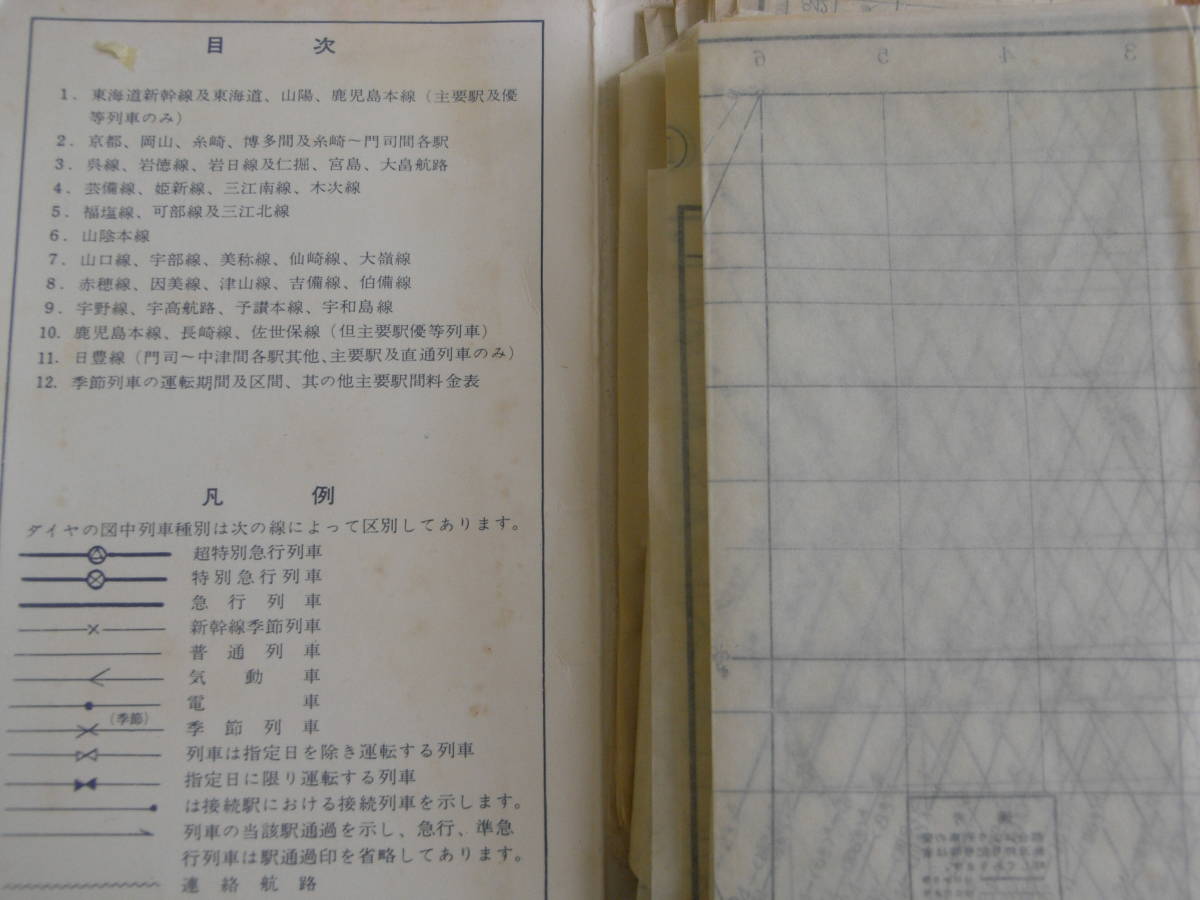 目次
1. 東海道新幹線及東海道、山陽、鹿児島本線（主要駅及優
等列車のみ）
2. 京都、岡山、糸崎、博多間及糸崎～門司間各駅
3. 呉線、岩徳線、岩日線及仁掘、宮島、大畠航路
4. 芸備線、姫新線、三江南線、木次線
5. 福塩線、可部線及三江北線
6. 山陰本線
7. 山口線、宇部線、美祢線、仙崎線、大嶺線
8. 赤穂線、因美線、津山線、吉備線、伯備線
9. 宇野線、宇高航路、予讃本線、宇和島線
10. 鹿児島本線、長崎線、佐世保線（但主要駅優等列車）
11. 日豊線（門司～中津間各駅其他、主要駅及直通列車のみ）
12. 季節列車の運転期間及区間、其の他主要駅間料金表
凡例
ダイヤの図中列車種別は次の線によって区別してあります。
超特別急行列車
特別急行列車
急行列車
新幹線季節列車
普通列車
気動車
電車
(季節) 季節列車
列車は指定日を除き運転する列車
指定日に限り運転する列車
は接続駅における接続列車を示します。
列車の当該駅通過を示し、急行、準急
行列車は駅通過印を省略してあります。
連絡航路
6 5 4 3